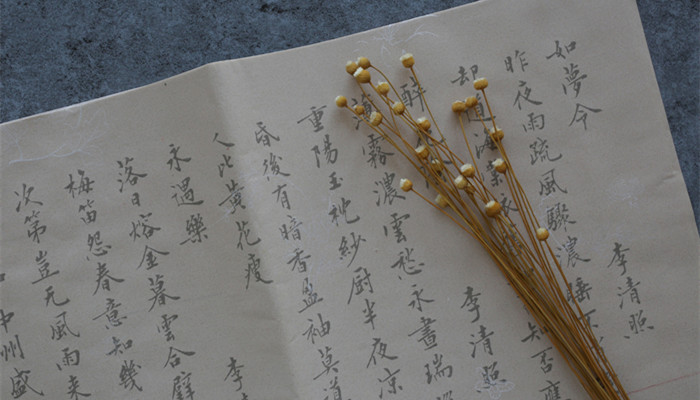 如夢令 李清照
昨夜雨疏風驟濃睡不
却道海棠 知否應
醉 李清照
薄霧濃雲愁永晝瑞
重陽玉枕紗厨半夜涼
昏後有暗香盈袖莫道
人比黃花瘦
永遇樂 李
落日熔金暮雲合璧
梅笛怨春意知幾
次第豈无風雨来
中州盛